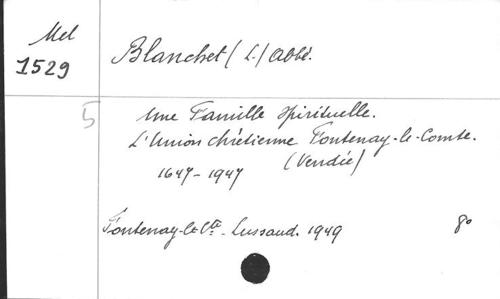 Mel
1529
Blanchet (L.) abbé.
5
Une Famille Spirituelle.
L'Union chrétienne Fontenay-le-Comte.
(Vendée)
1647-1947
Fontenay-le-Cte - Lussaud. 1949
8°